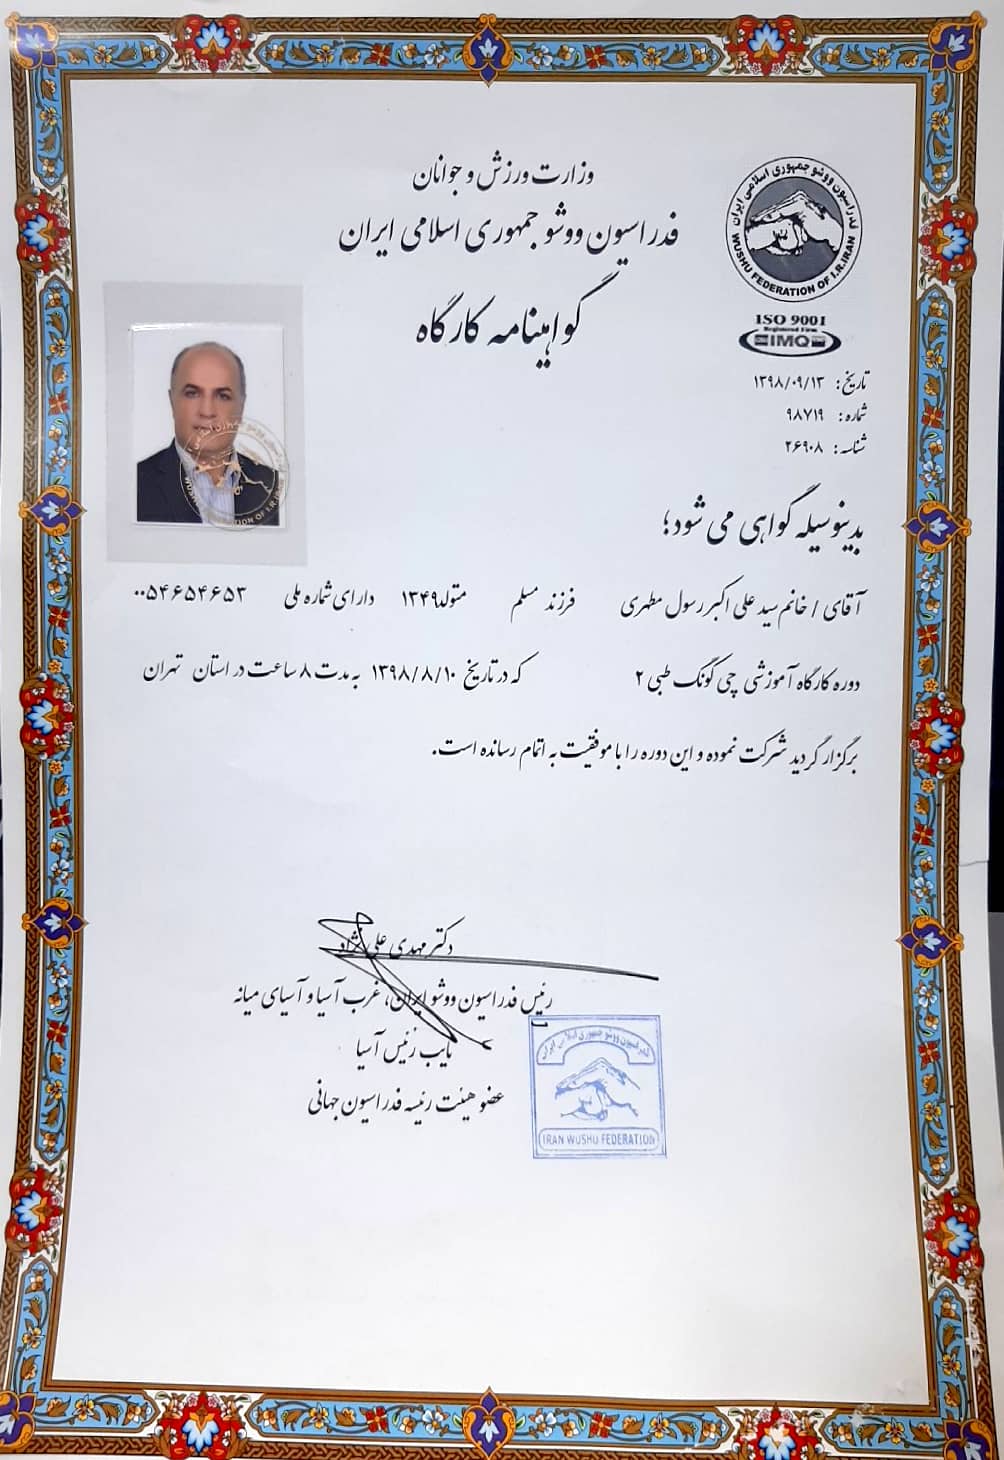 وزارت ورزش و جوانان
فدراسیون ووشو جمهوری اسلامی ایران
گواهینامه کارگاه
فدراسیون ووشو جمهوری اسلامی ایران
WUSHU FEDERATION OF I.R.IRAN
ISO 9001
Registered Firm
IMQ
تاریخ: ۱۳۹۸/۰۹/۱۳
شماره: ۹۸۷۱۹
شناسه: ۲۶۹۰۸
بدینوسیله گواهی می شود؛
آقای / خانم سید علی اکبر رسول مطهری فرزند مسلم متولد ۱۳۴۹ دارای شماره ملی ۰۰۵۴۶۵۴۶۵۳
دوره کارگاه آموزشی چی گونگ طبی ۲ که در تاریخ ۱۳۹۸/۸/۱۰ به مدت ۸ ساعت در استان تهران
برگزار گردید شرکت نموده و این دوره را با موفقیت به اتمام رسانده است.
دکتر مهدی علی نژاد
رئیس فدراسیون ووشو ایران، غرب آسیا و آسیای میانه
نایب رئیس آسیا
عضو هیئت رئیسه فدراسیون جهانی
فدراسیون ووشو جمهوری اسلامی ایران
IRAN WUSHU FEDERATION